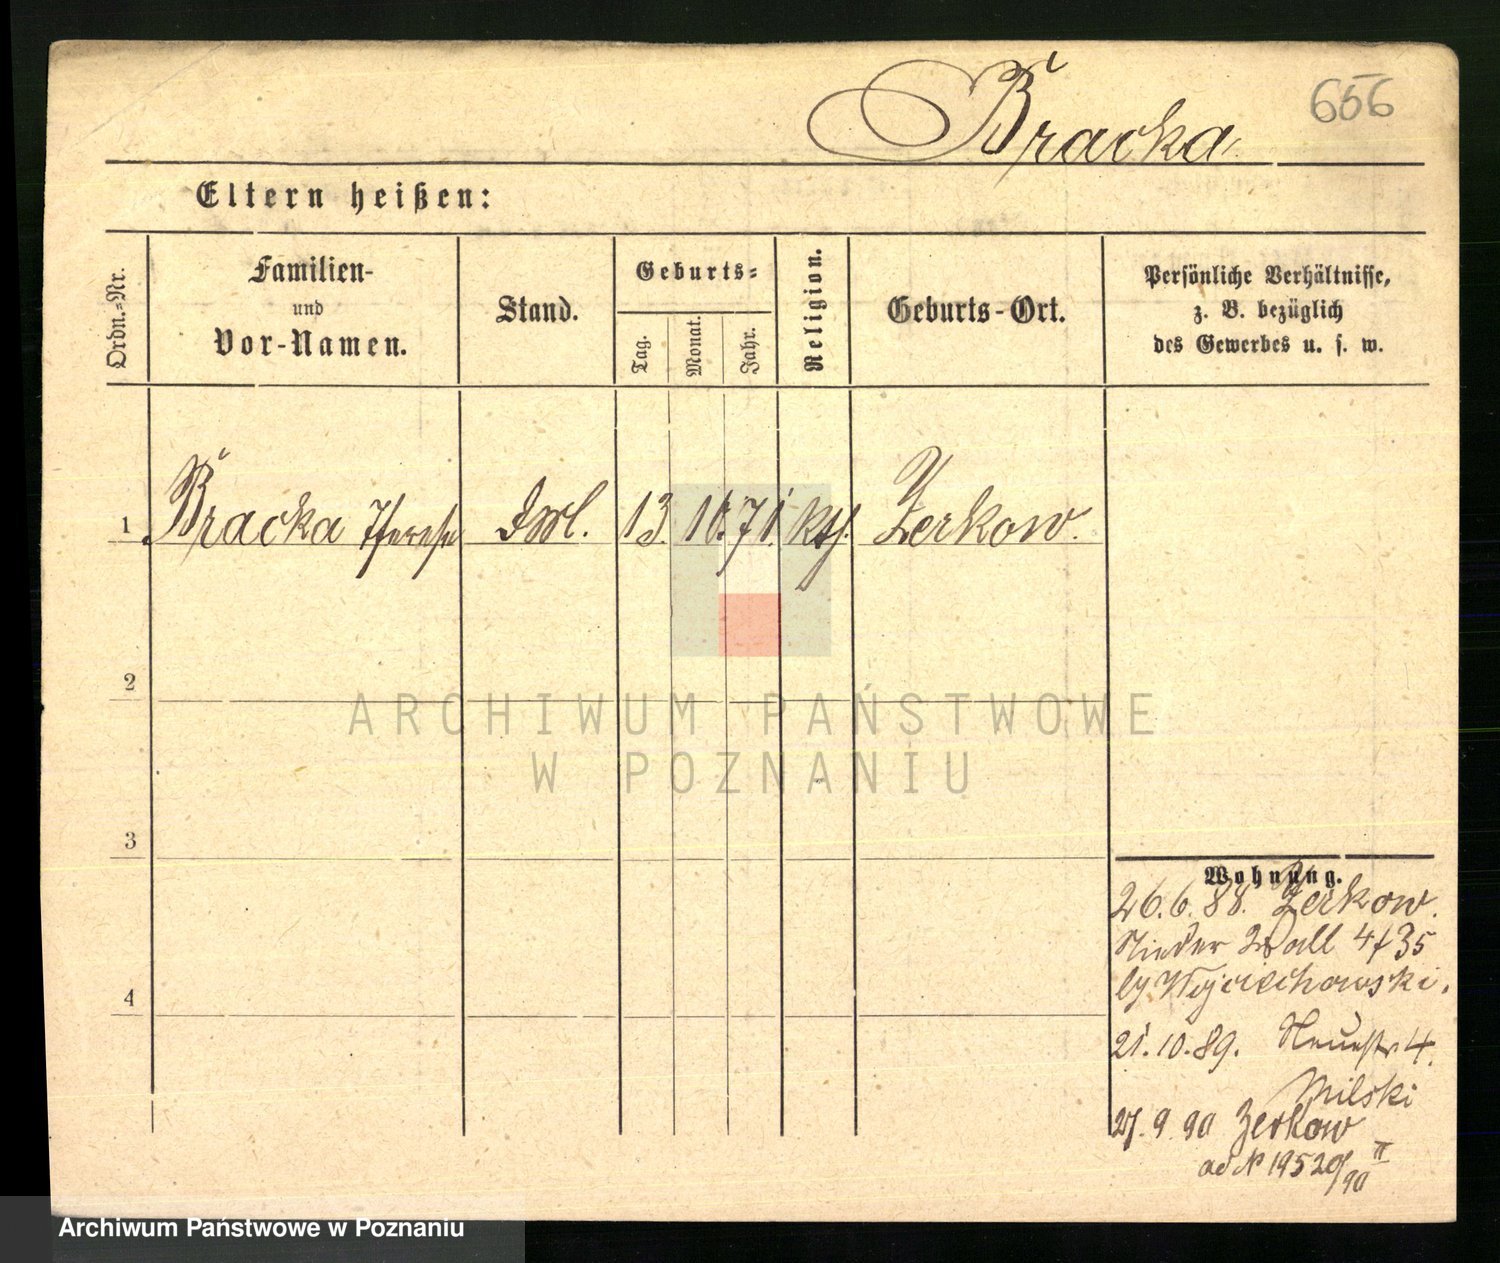 Bracka
656
Eltern heißen:
Ordn.-Nr.
Familien-
und
Vor-Namen.
Stand.
Geburts-
Tag.
Monat.
Jahr.
Religion.
Geburts-Ort.
Persönliche Verhältnisse,
z. B. bezüglich
des Gewerbes u. s. w.
1 Bracka Therese 13. 10. 71. kth. Zerkow.
2
3
4
ARCHIWUM PAŃSTWOWE
W POZNANIU
Wohnung.
26.6.88. Zerkow.
Nieder Wall 4/35
by Wojciechowski.
21.10.89. Neuestr 4.
Milski
27.9.90 Zerkow
ad N 19520/90 II
Archiwum Państwowe w Poznaniu